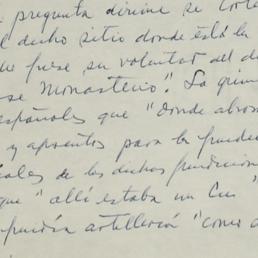 pregunta dirime si Cortés
el dicho sitio donde está la
fuese su voluntad del d
ese Monasterio". La prim
españoles que "donde ahora
y aposentos para la fundic
ales de las dichas fundicion
que "allí estaba un Cu"
artillería "como a